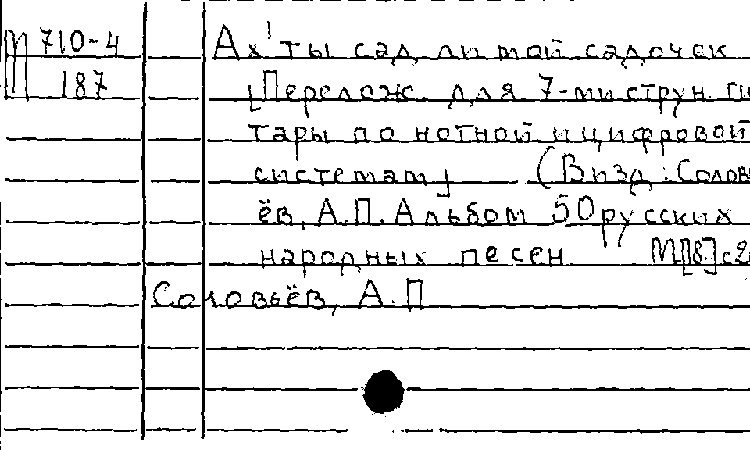 М 710-4
187
Ах! ты сад ли мой садочек
[Перелож. для 7-ми струн. ги
тары по нотной и цифровой
системам] (В изд.: Солов
ёв, А.П. Альбом 50 русских
народных песен М., [18
Соловьёв, А.П